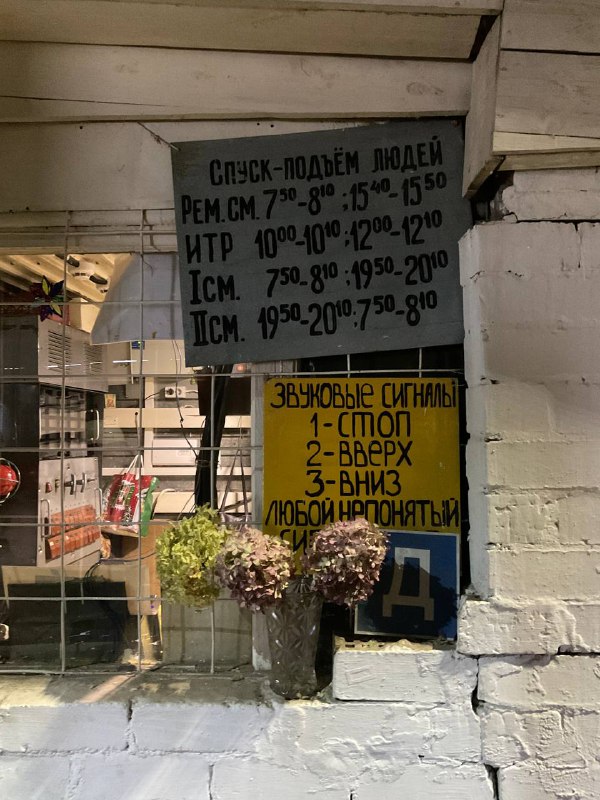 СПУСК-ПОДЪЁМ ЛЮДЕЙ
РЕМ.СМ. 7⁵⁰-8¹⁰; 15⁴⁰-15⁵⁰
ИТР 10⁰⁰-10¹⁰; 12⁰⁰-12¹⁰
I СМ. 7⁵⁰-8¹⁰; 19⁵⁰-20¹⁰
II СМ. 19⁵⁰-20¹⁰; 7⁵⁰-8¹⁰
ЗВУКОВЫЕ СИГНАЛЫ
1-СТОП
2-ВВЕРХ
3-ВНИЗ
ЛЮБОЙ НЕПОНЯТЫЙ
Д